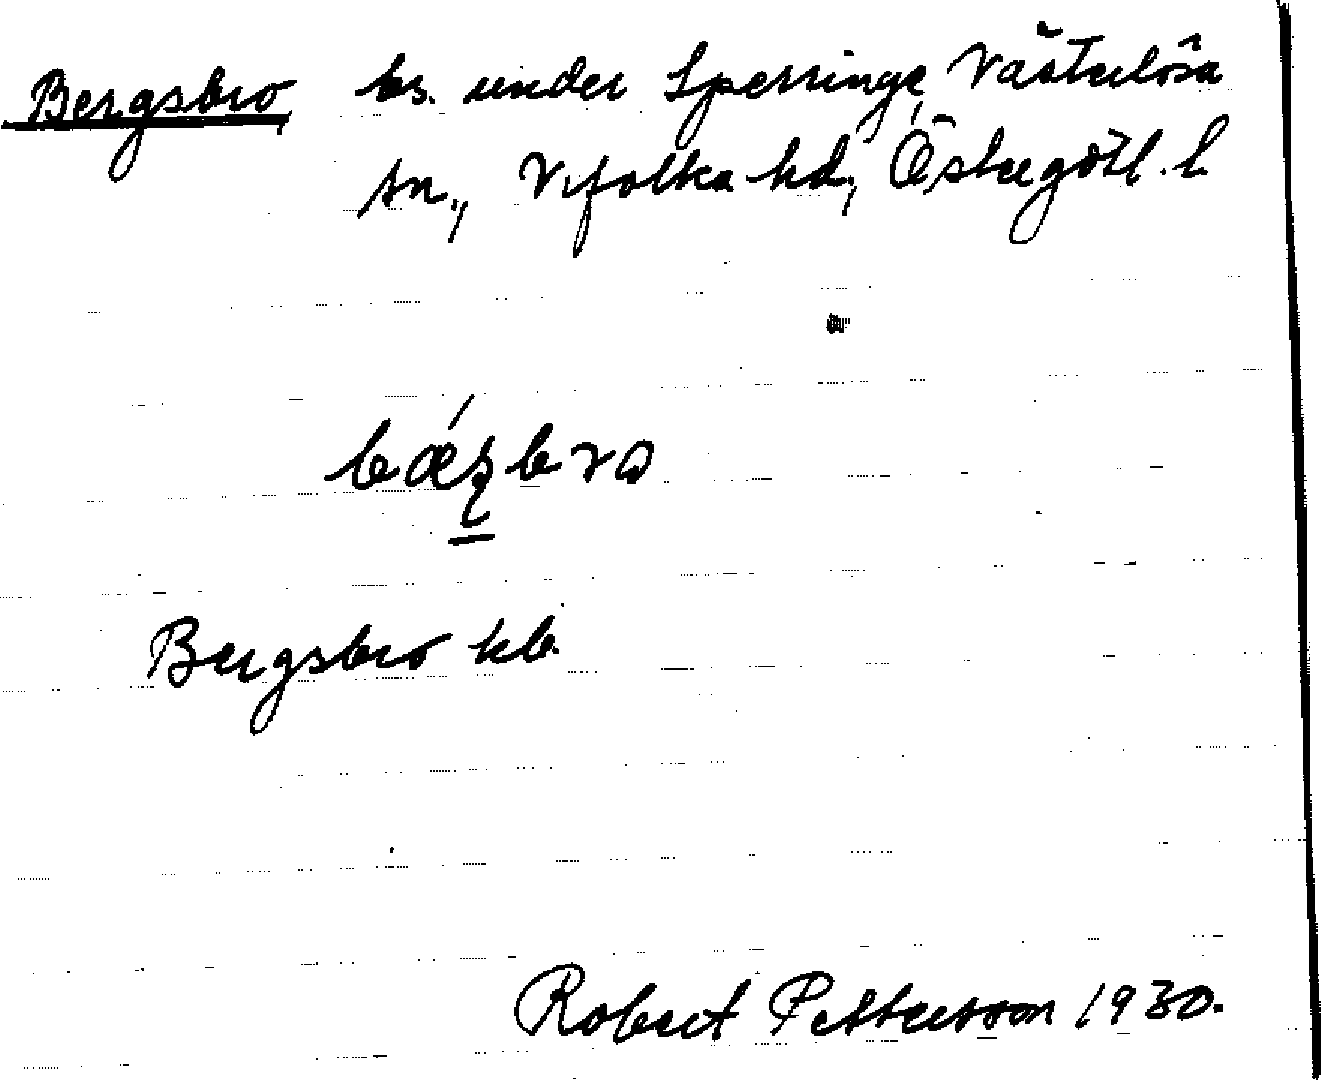 Bergsbro, bs. under Sperringe, Västerlösa
sn., Vifolka hd, Östergötl. l.
bǽꞩbro
Bergsbro kb.
Robert Pettersson 1930.